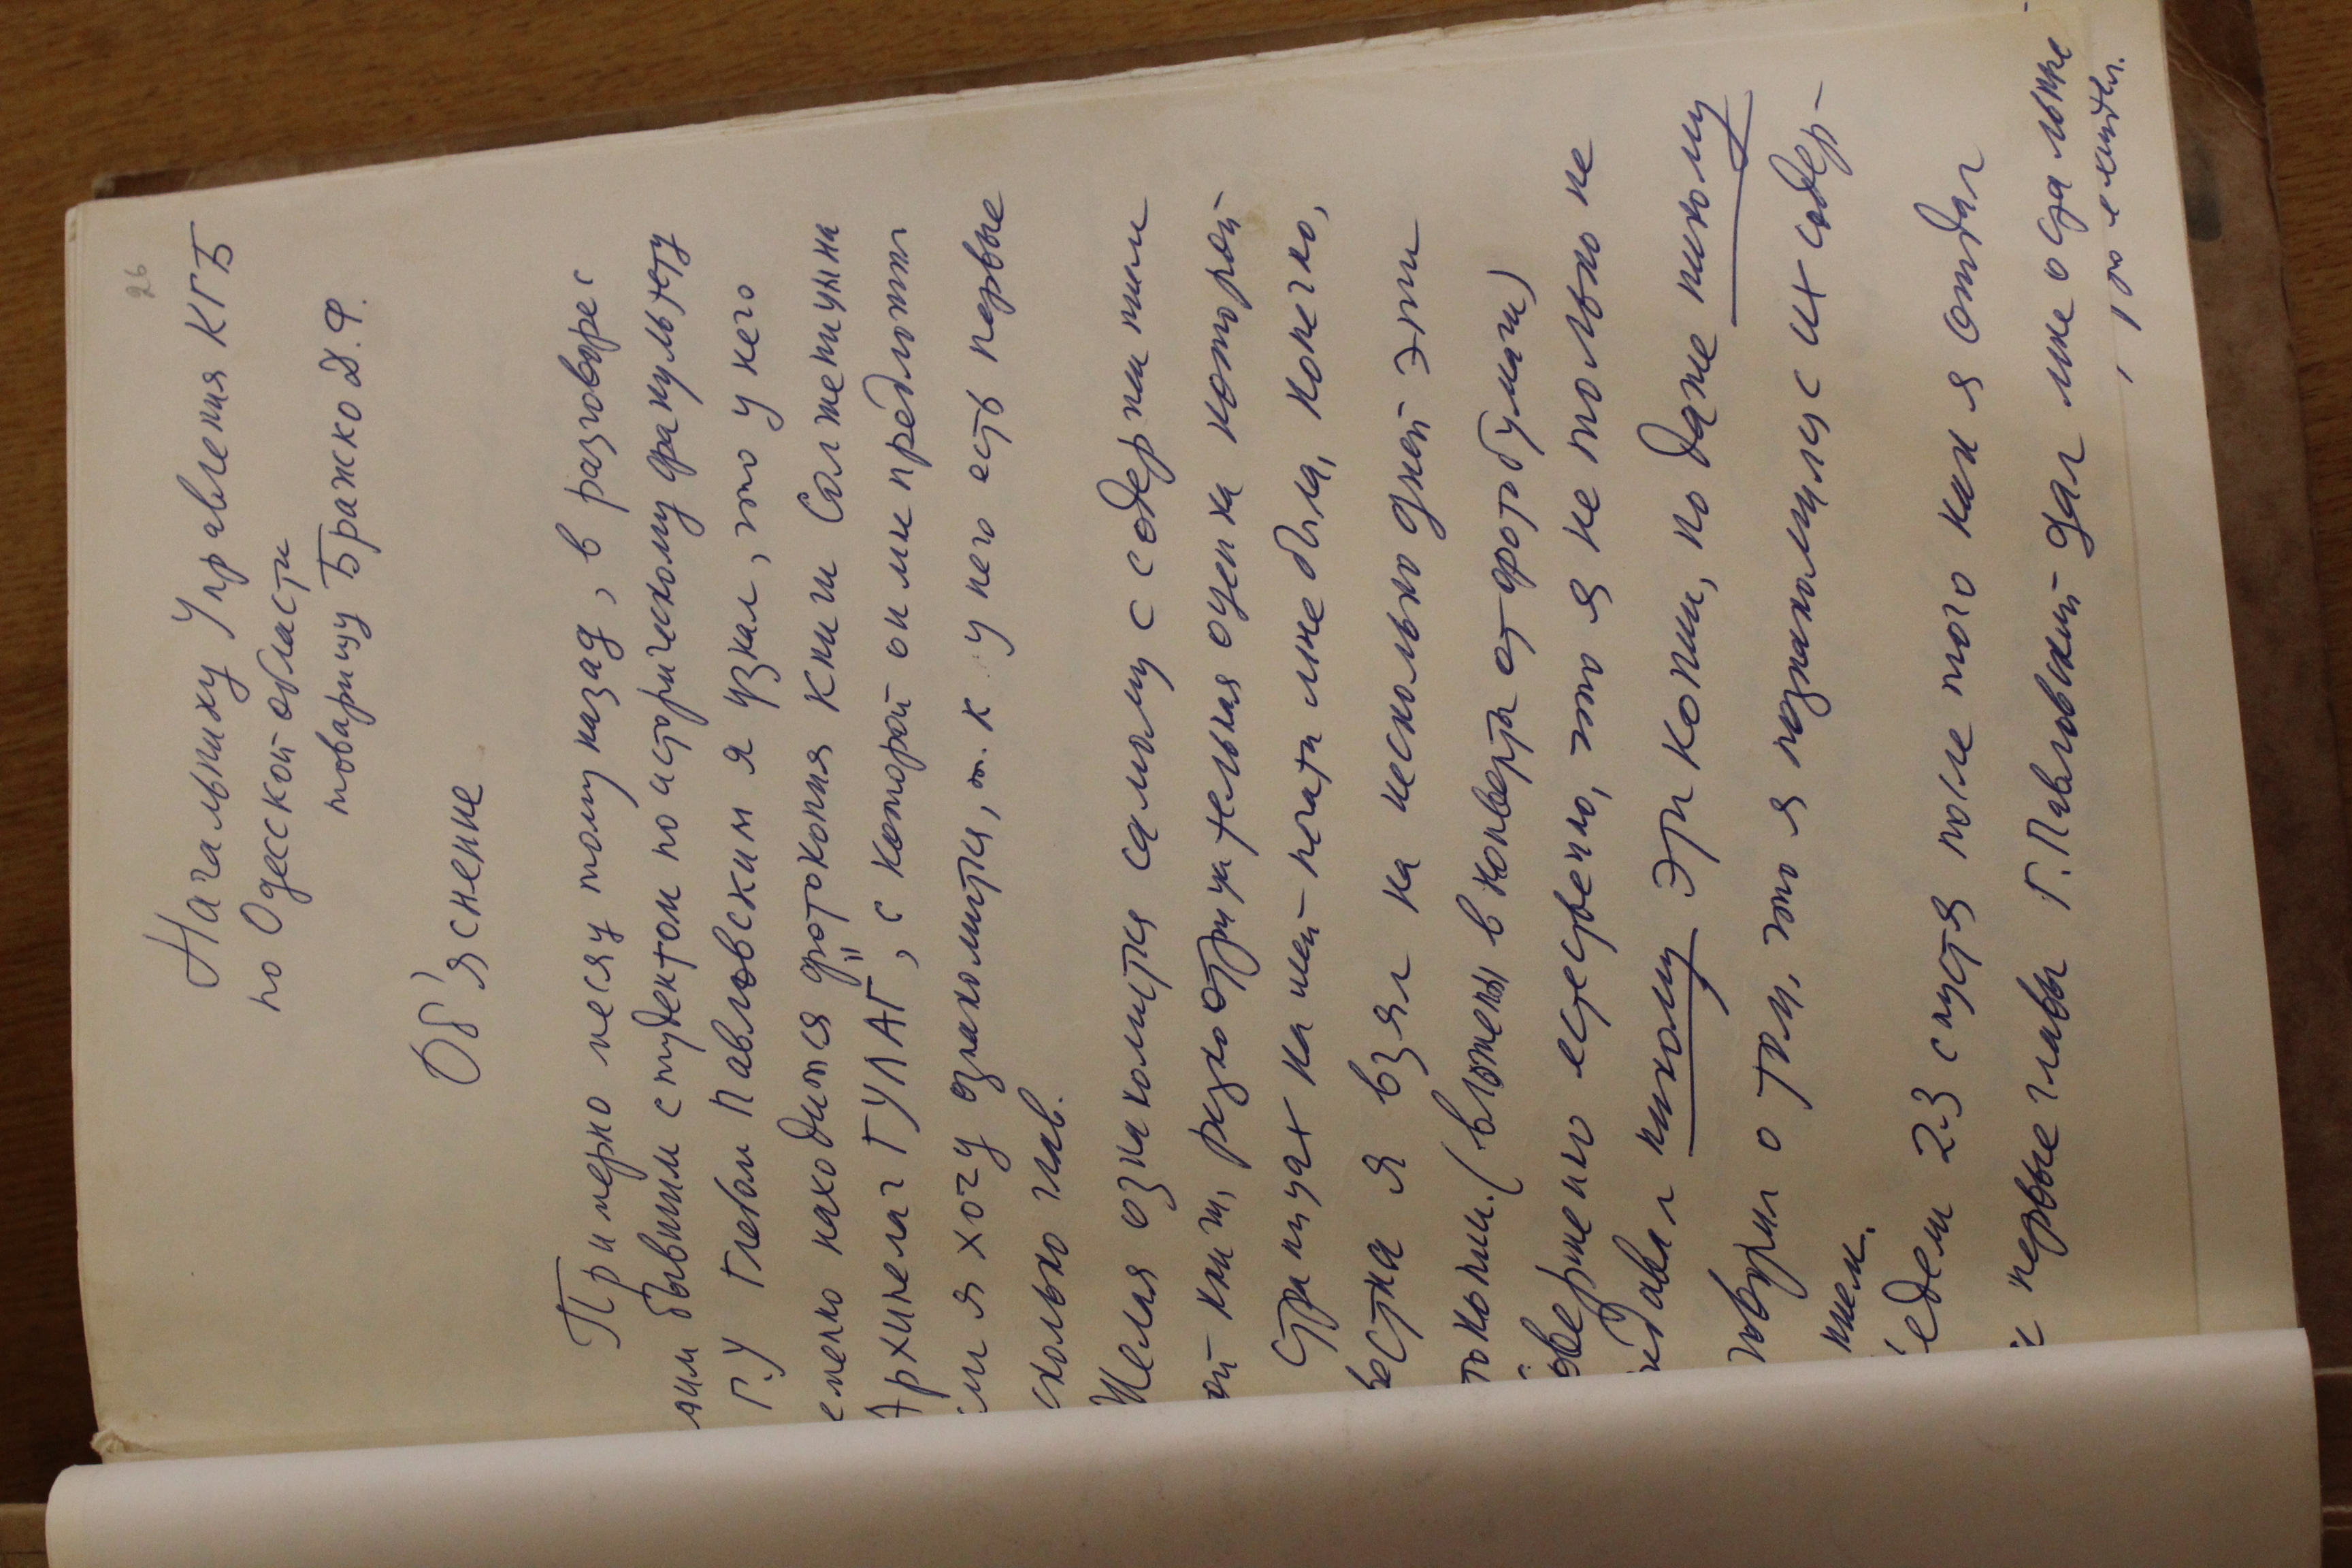 26
Начальнику Управления КГБ
по Одесской области
товарищу Бражко Д.Ф.
Об'яснение
Примерно месяц тому назад, в разговоре с
бывшим студентом по историческому факультету
Г.У Глебом Павловским я узнал, что у него
находится фотокопия книги Солженицына
"Архипелаг ГУЛАГ", с которой он мне предложил
я хочу ознакомится, т.к у него есть первые
сколько глав.
Желая ознакомится самому с содержанием
книги, резко отрицательная оценка которой
страницах нашей печати мне была, конечно,
я взял на несколько дней эти
(вложены в конверта от фотобумаги)
естественно, что я не только не
никому эти копии, но даже никому
о том, что я познакомился с их содер-
2-3 спустя после того как я отдал
первые главы Г. Павловский дал мне остальные